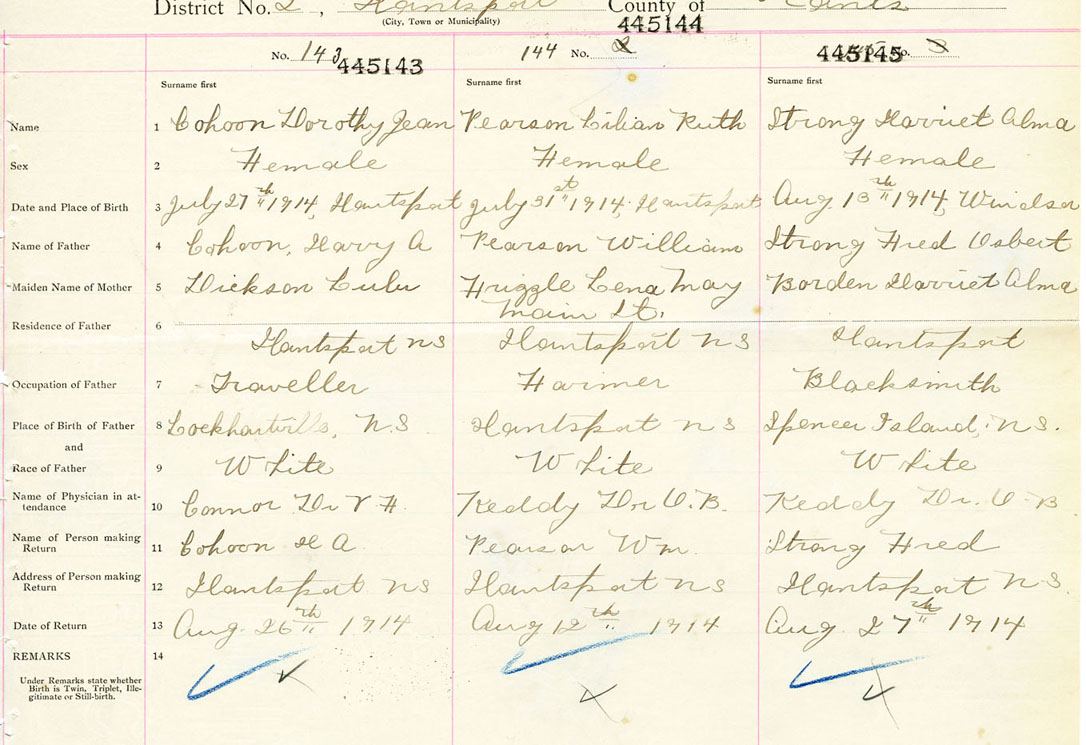 District No. 2, Hantsport County of Hants
(City, Town or Municipality)
445144
No. 143 445143
144 No. 2
445145 No. 3
Surname first Surname first Surname first
Name 1 Cohoon Dorothy Jean Pearson Lilian Ruth Strong Harriet Alma
Sex 2 Female Female Female
Date and Place of Birth 3 July 27th 1914, Hantsport July 31st 1914. Hantsport Aug 13th 1914, Windsor
Name of Father 4 Cohoon, Harry A Pearson William Strong Fred Osbert
Maiden Name of Mother 5 Dickson Lulu Frizzle Lena May Borden Harriet Alma
Main St.
Residence of Father 6
Hantsport NS Hantsport NS Hantsport
Occupation of Father 7 Traveller Farmer Blacksmith
Place of Birth of Father 8 Lockhartville, N.S Hantsport NS Spencer Island, N.S.
and
Race of Father 9 White White White
Name of Physician in at-
tendance 10 Connor Dr V H. Keddy Dr. O.B. Keddy Dr. O B.
Name of Person making
Return 11 Cohoon H A. Pearson Wm. Strong Fred
Address of Person making
Return 12 Hantsport NS Hantsport NS Hantsport NS.
Date of Return 13 Aug. 26th 1914 Aug 12th 1914 Aug. 27th 1914
REMARKS 14
Under Remarks state whether
Birth is Twin, Triplet, Ille-
gitimate or Still-birth.